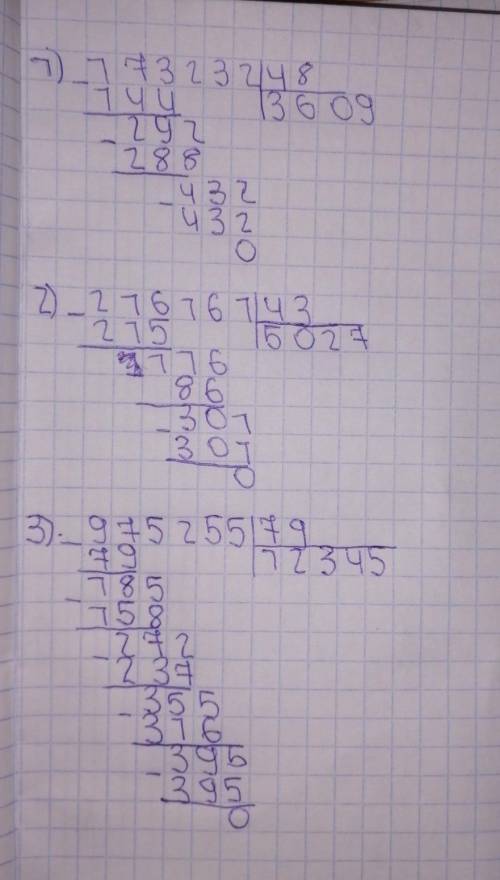 1) - 173232 | 48
144 | 3609
- 292
288
- 432
432
0
2) - 216161 | 43
215 | 5027
116
86
- 301
301
0
3) - 975255 | 79
79 | 12345
- 185
158
- 272
237
- 355
316
- 395
395
0